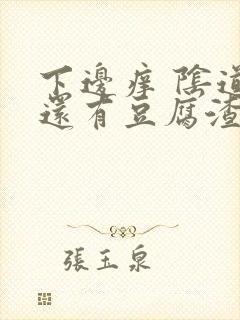 下邊癢 陰道
還有豆腐渣
張玉泉